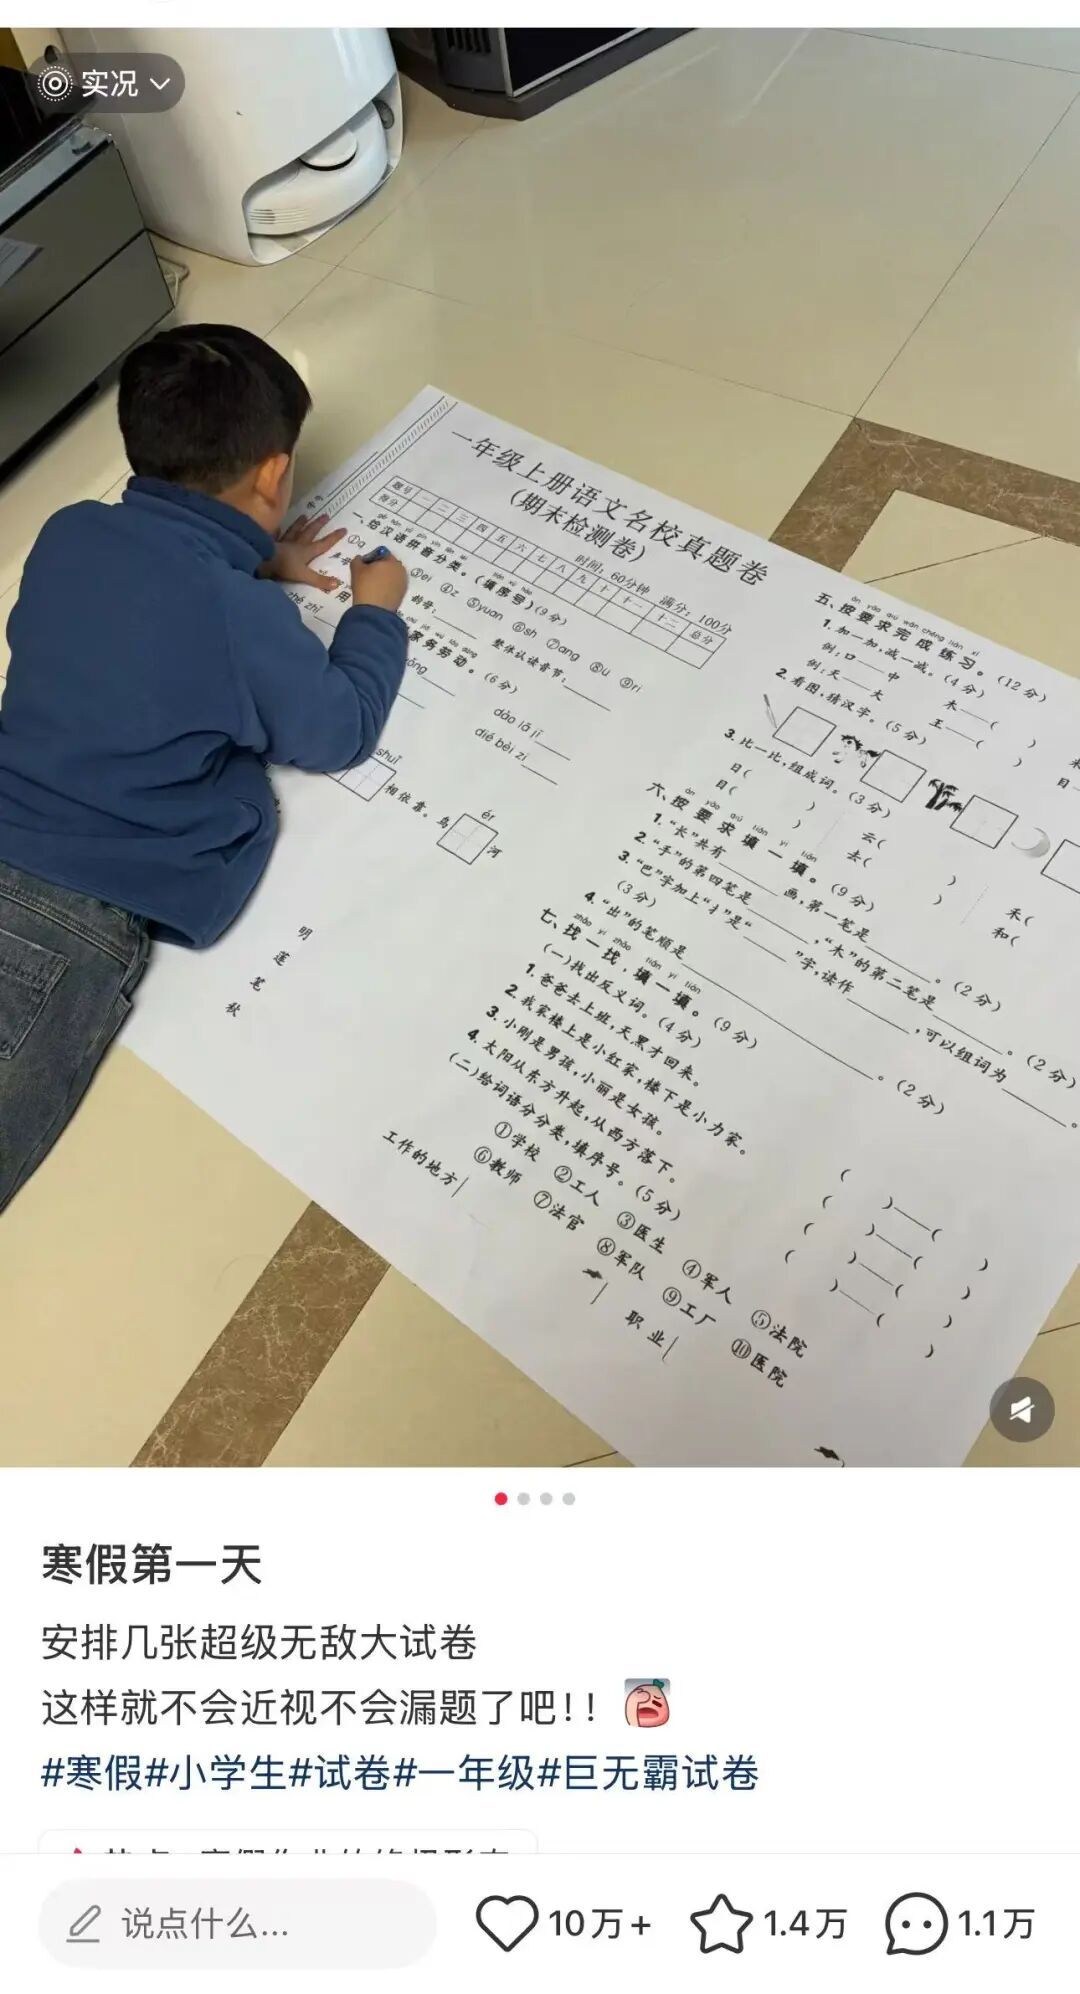 实况
一年级上册语文名校真题卷
(期末检测卷)
时间：60分钟 满分：100分
题号 一 二 三 四 五 六 七 八 九 十 十一 十二 总分
得分
一、给汉语拼音分类。(填序号)(9分)
③ei ④z ⑤yuan ⑥sh ⑦ang ⑧ü ⑨ri
声母
韵母：
整体认读音节：
家务劳动。(6分)
zhé zhǐ
dào lā jī
dié bèi zi
shuǐ
相依靠。鸟
ér
河
明
莲
笔
秋
五、按要求完成练习。(12分)
1.加一加，减一减。(4分)
例：口——中 木——( )
例：天——大 王——( )
2.看图，猜汉字。(5分)
3.比一比，组成词。(3分)
日( ) 云( ) 禾(
目( ) 去( ) 和(
六、按要求填一填。(9分)
1.“长”共有 画，第一笔是 。(2分)
2.“手”的第四笔是 ，“木”的第二笔是 。(2分)
3.“巴”字加上“扌”是“ ”字，读作 ，可以组词为 。
(3分)
4.“出”的笔顺是 。(2分)
七、找一找，填一填。(9分)
(一)找出反义词。(4分)
1.爸爸去上班，天黑才回来。
2.我家楼上是小红家，楼下是小力家。
3.小刚是男孩，小丽是女孩。
4.太阳从东方升起，从西方落下。
( )——( )
( )——( )
( )——( )
( )——( )
(二)给词语分分类，填序号。(5分)
①学校 ②工人 ③医生 ④军人 ⑤法院
⑥教师 ⑦法官 ⑧军队 ⑨工厂 ⑩医院
工作的地方
职业
寒假第一天
安排几张超级无敌大试卷
这样就不会近视不会漏题了吧！！
#寒假#小学生#试卷#一年级#巨无霸试卷
说点什么...
10万+
1.4万
1.1万